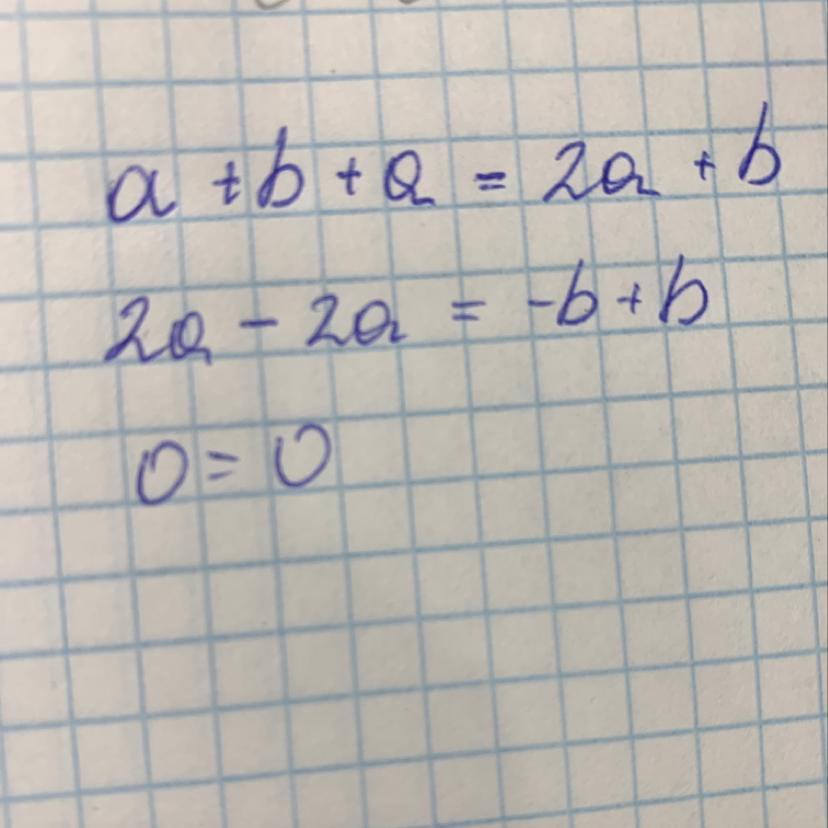 a + b + a = 2a + b
2a - 2a = -b + b
0 = 0